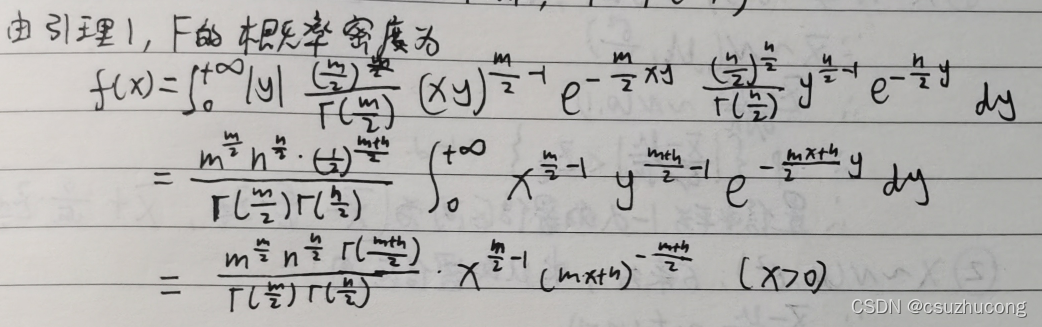 由引理1, F的概率密度为
f(x)=∫₀^{+∞} |y| \frac{(\frac{m}{2})^{\frac{m}{2}}}{Γ(\frac{m}{2})} (xy)^{\frac{m}{2}-1} e^{-\frac{m}{2}xy} \frac{(\frac{n}{2})^{\frac{n}{2}}}{Γ(\frac{n}{2})} y^{\frac{n}{2}-1} e^{-\frac{n}{2}y} dy
= \frac{m^{\frac{m}{2}} n^{\frac{n}{2}} · (\frac{1}{2})^{\frac{m+n}{2}}}{Γ(\frac{m}{2})Γ(\frac{n}{2})} ∫₀^{+∞} x^{\frac{m}{2}-1} y^{\frac{m+n}{2}-1} e^{-\frac{mx+n}{2}y} dy
= \frac{m^{\frac{m}{2}} n^{\frac{n}{2}} Γ(\frac{m+n}{2})}{Γ(\frac{m}{2})Γ(\frac{n}{2})} · x^{\frac{m}{2}-1} (mx+n)^{-\frac{m+n}{2}} (x>0)
CSDN @csuzhucong